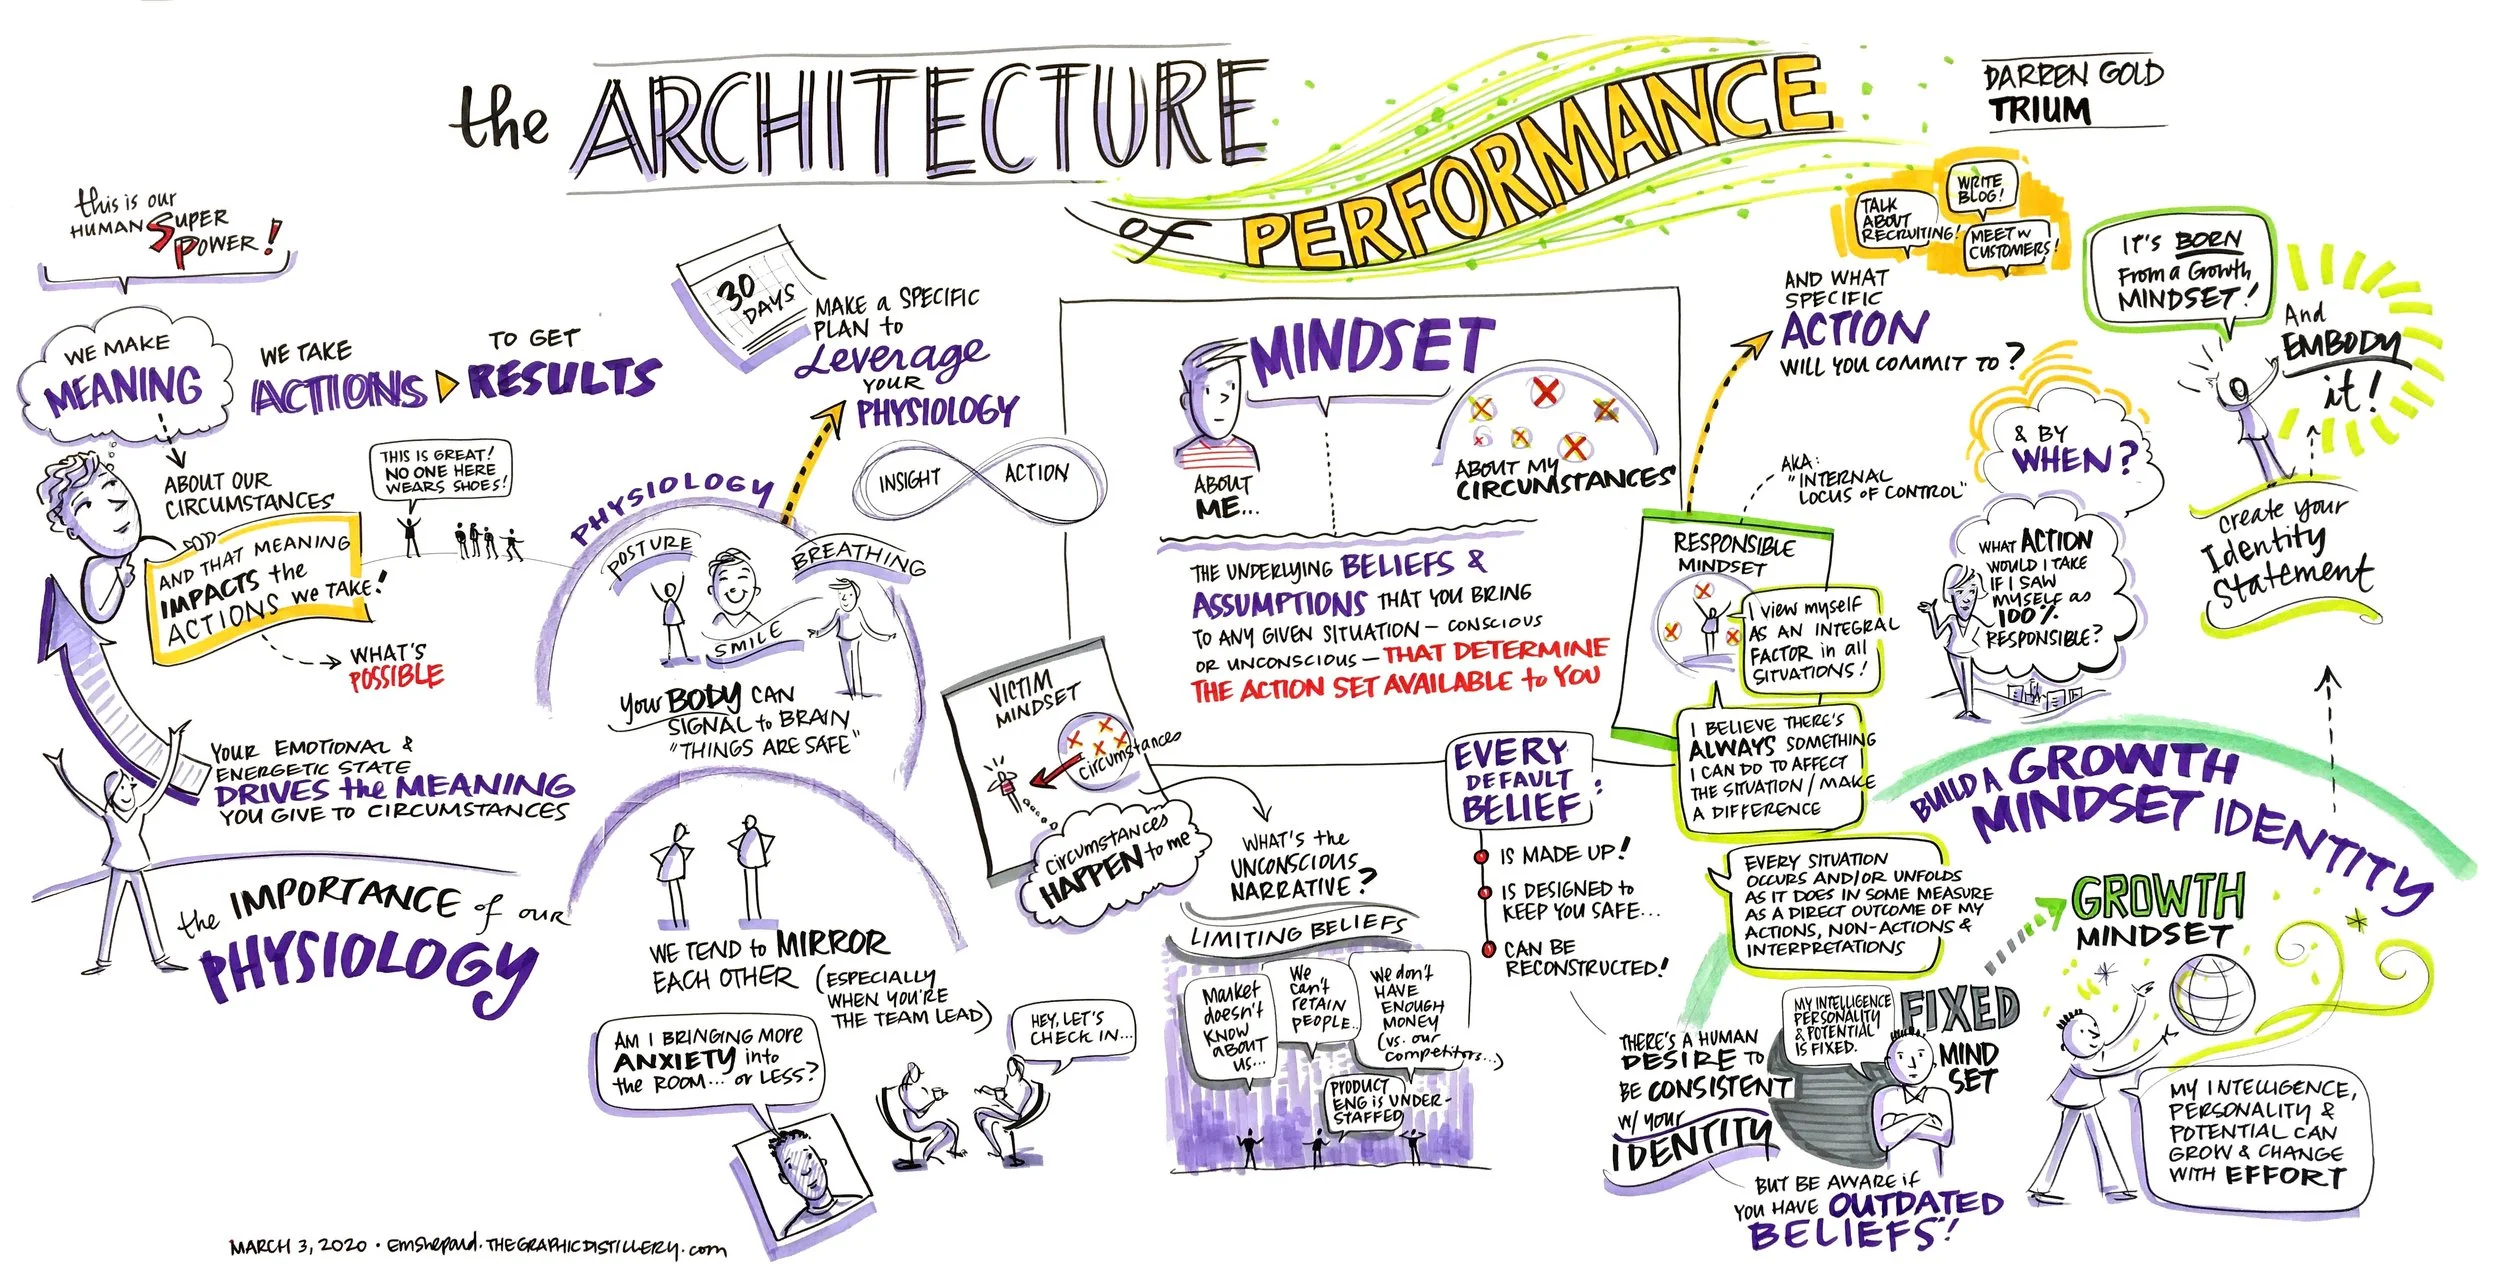 the ARCHITECTURE
of PERFORMANCE
DARREN GOLD
TRIUM
this is our
HUMAN SUPER
POWER!
WE MAKE
MEANING
WE TAKE
ACTIONS
TO GET
RESULTS
ABOUT OUR
CIRCUMSTANCES
AND THAT MEANING
IMPACTS the
ACTIONS WE TAKE!
WHAT'S
POSSIBLE
THIS IS GREAT!
NO ONE HERE
WEARS SHOES!
YOUR EMOTIONAL &
ENERGETIC STATE
DRIVES the MEANING
YOU GIVE TO CIRCUMSTANCES
the IMPORTANCE of our
PHYSIOLOGY
30
DAYS
MAKE a SPECIFIC
PLAN to
Leverage
YOUR
PHYSIOLOGY
INSIGHT
ACTION
PHYSIOLOGY
POSTURE
BREATHING
SMILE
Your BODY CAN
SIGNAL to BRAIN
"THINGS ARE SAFE"
WE TEND to MIRROR
EACH OTHER (ESPECIALLY
WHEN YOU'RE
THE TEAM LEAD)
AM I BRINGING MORE
ANXIETY into
the ROOM... or LESS?
HEY, LET'S
CHECK IN...
MINDSET
ABOUT
ME...
ABOUT MY
CIRCUMSTANCES
THE UNDERLYING BELIEFS &
ASSUMPTIONS THAT YOU BRING
TO ANY GIVEN SITUATION – CONSCIOUS
OR UNCONSCIOUS – THAT DETERMINE
THE ACTION SET AVAILABLE to YOU
VICTIM
MINDSET
circumstances
circumstances
HAPPEN to me
WHAT'S the
UNCONSCIOUS
NARRATIVE?
LIMITING BELIEFS
Market
doesn't
KNOW
ABOUT
US...
We
can't
RETAIN
PEOPLE...
We don't
HAVE
ENOUGH
MONEY
(vs. our
competitors...)
PRODUCT
ENG is UNDER-
STAFFED
EVERY
DEFAULT
BELIEF:
IS MADE UP!
IS DESIGNED to
KEEP YOU SAFE...
CAN BE
RECONSTRUCTED!
RESPONSIBLE
MINDSET
I view myself
AS AN INTEGRAL
FACTOR in all
SITUATIONS!
I BELIEVE THERE'S
ALWAYS SOMETHING
I CAN DO TO AFFECT
THE SITUATION / MAKE
A DIFFERENCE
EVERY SITUATION
OCCURS AND/OR UNFOLDS
AS IT DOES IN SOME MEASURE
AS A DIRECT OUTCOME OF MY
ACTIONS, NON-ACTIONS &
INTERPRETATIONS
AKA:
"INTERNAL
LOCUS OF CONTROL"
AND WHAT
SPECIFIC
ACTION
WILL YOU COMMIT TO?
TALK
ABOUT
RECRUITING!
WRITE
BLOG!
MEET W
CUSTOMERS!
& BY
WHEN?
WHAT ACTION
WOULD I TAKE
IF I SAW
MYSELF as
100%
RESPONSIBLE?
THERE'S A HUMAN
DESIRE TO
BE CONSISTENT
w/ your
IDENTITY
BUT BE AWARE if
YOU HAVE OUTDATED
BELIEFS"!
BUILD A GROWTH
MINDSET IDENTITY
MY INTELLIGENCE
PERSONALITY
& POTENTIAL
IS FIXED.
FIXED
MIND
SET
GROWTH
MINDSET
MY INTELLIGENCE,
PERSONALITY &
POTENTIAL CAN
GROW & CHANGE
WITH EFFORT
create your
Identity
Statement
IT'S BORN
From a Growth
MINDSET!
And
EMBODY
it!
MARCH 3, 2020 · emshepard.THEGRAPHICDISTILLERY.com